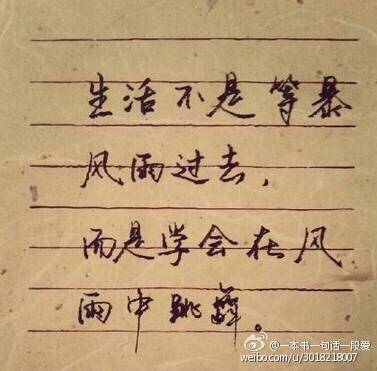 生活不是等暴
风雨过去,
而是学会在风
雨中跳舞。
@一本书一句话一段爱
weibo.com/u/3018218007